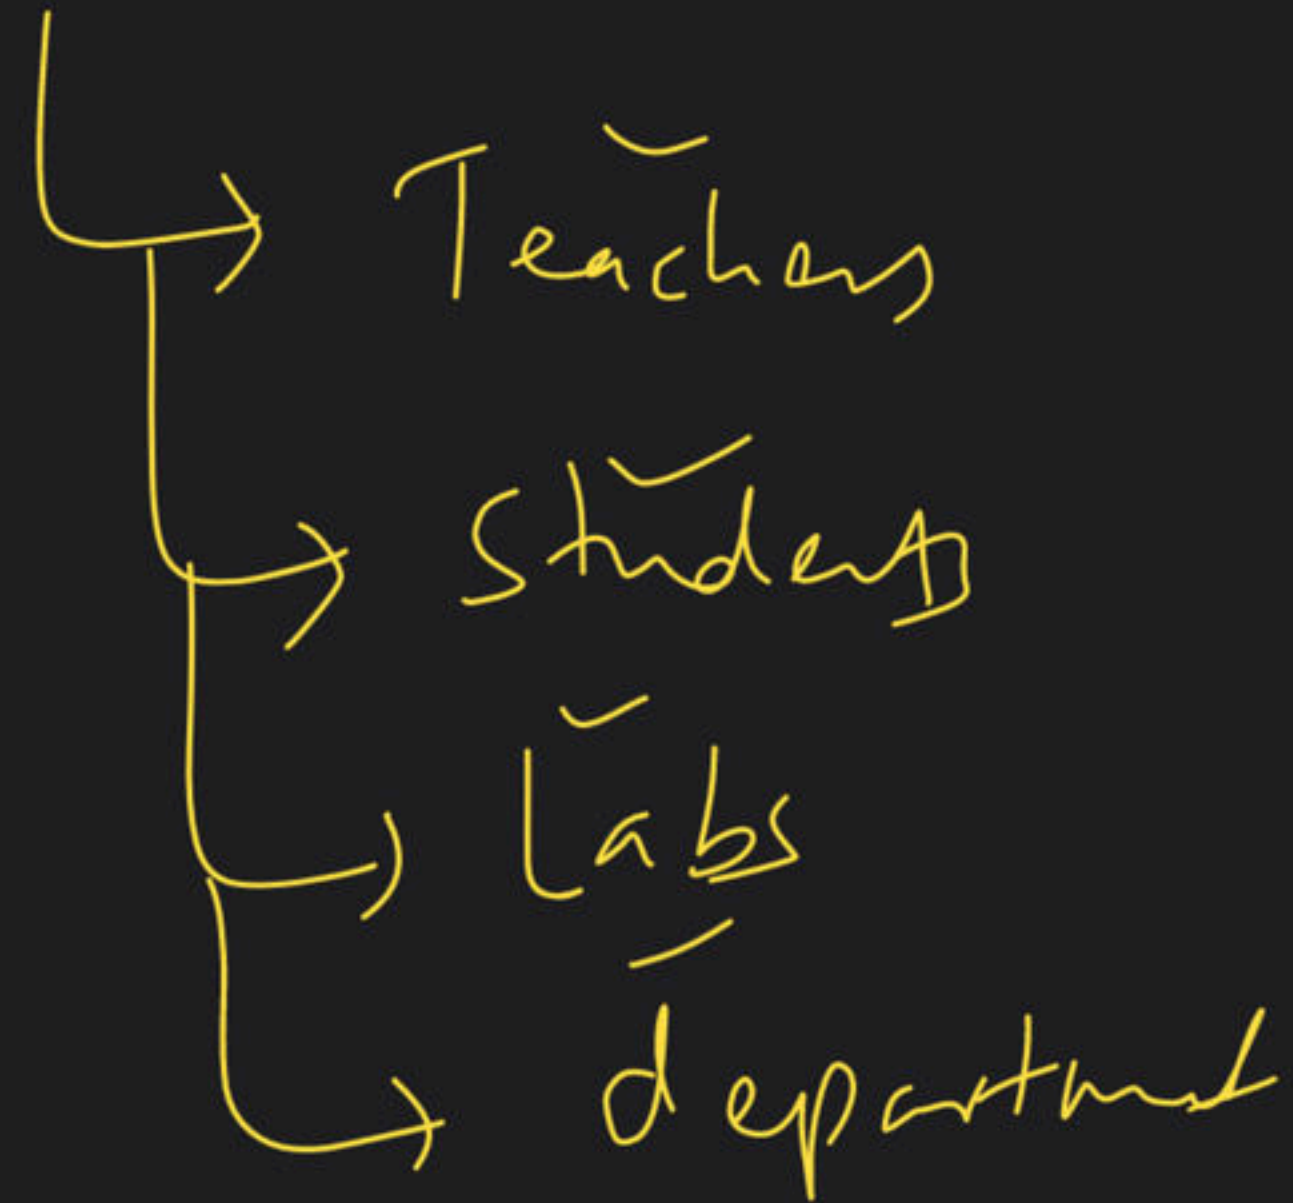 Teachers
Students
Labs
department